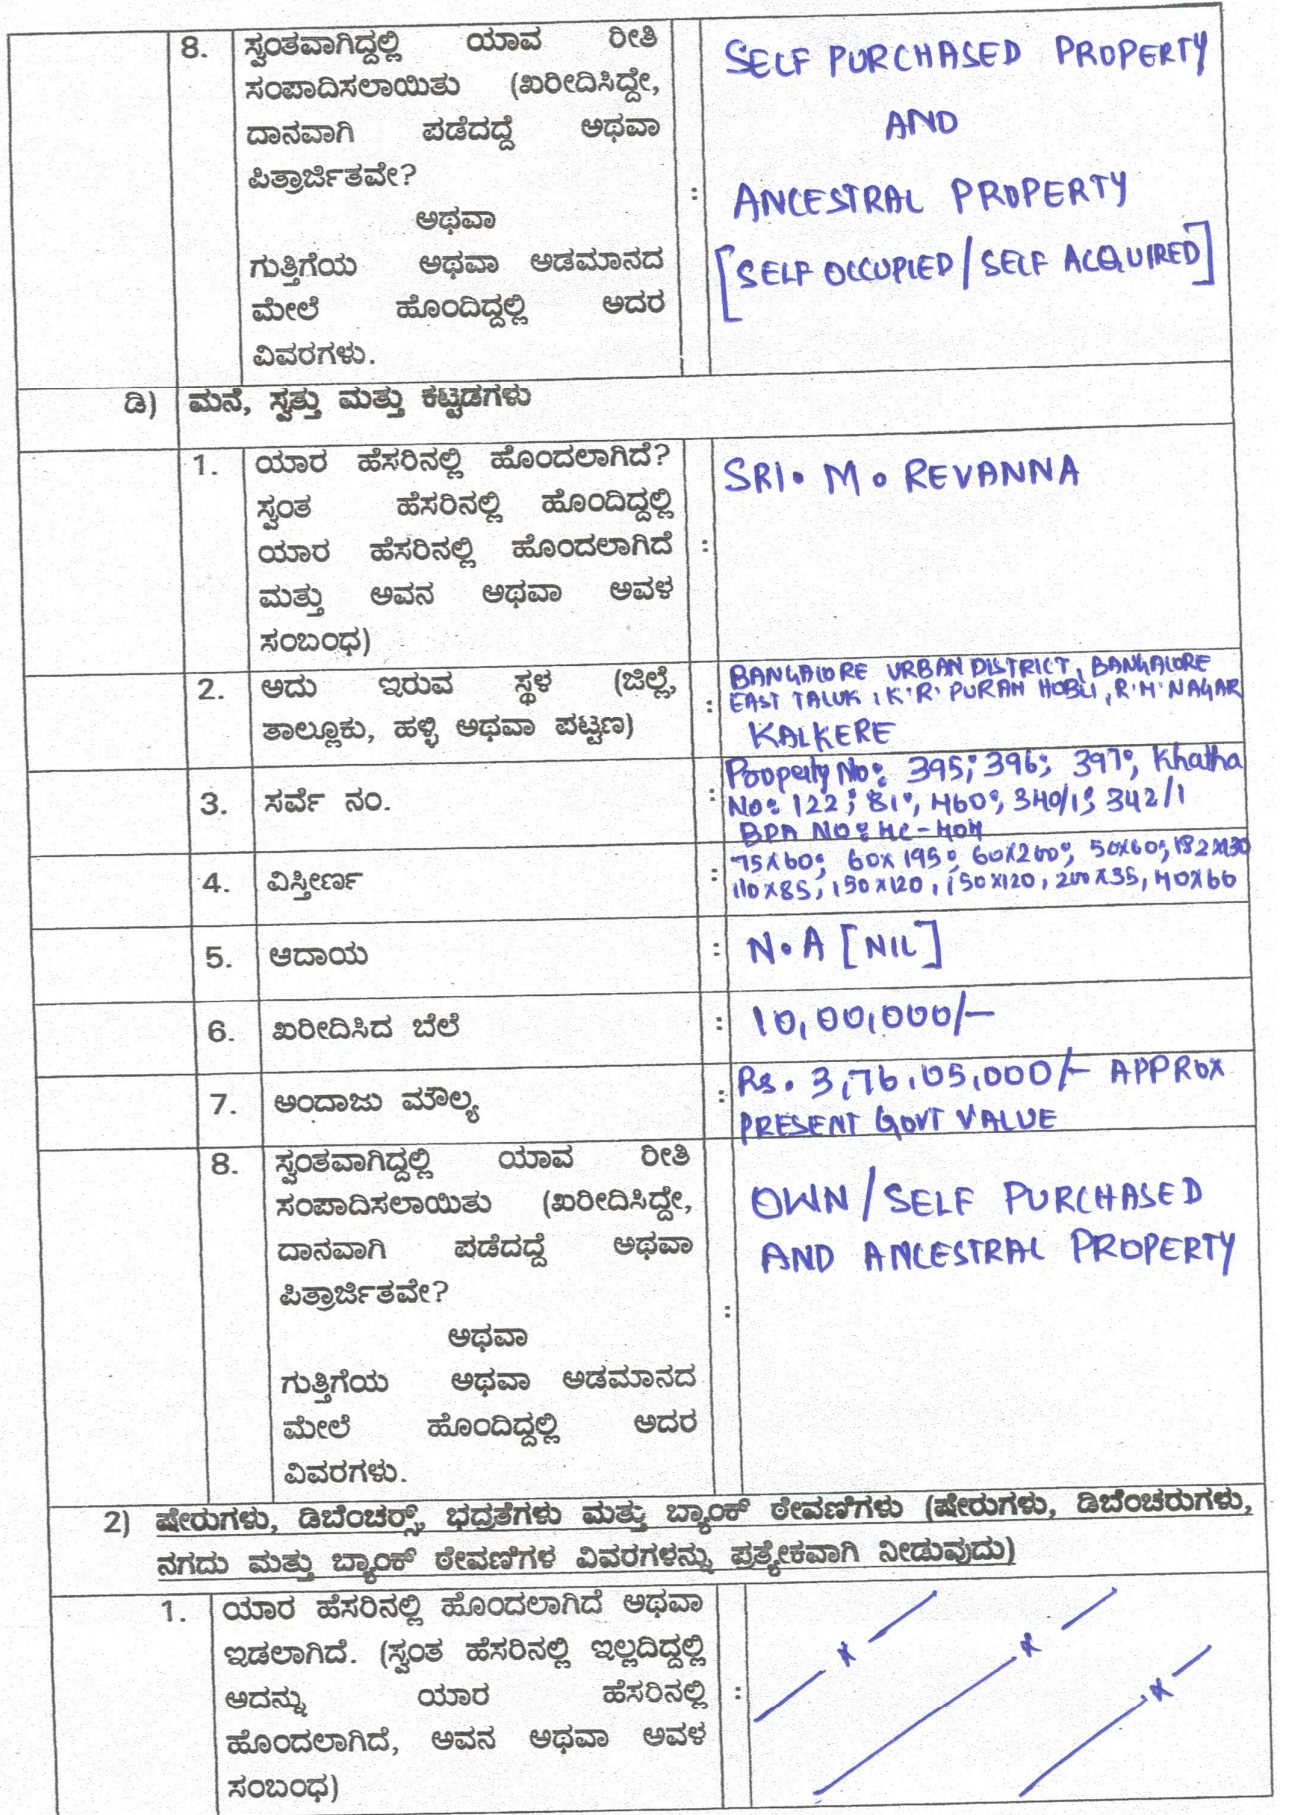 8. ಸ್ವಂತವಾಗಿದ್ದಲ್ಲಿ ಯಾವ ರೀತಿ
ಸಂಪಾದಿಸಲಾಯಿತು (ಖರೀದಿಸಿದ್ದೇ,
ದಾನವಾಗಿ ಪಡೆದದ್ದೆ ಅಥವಾ
ಪಿತ್ರಾರ್ಜಿತವೇ?
ಅಥವಾ
ಗುತ್ತಿಗೆಯ ಅಥವಾ ಅಡಮಾನದ
ಮೇಲೆ ಹೊಂದಿದ್ದಲ್ಲಿ ಅದರ
ವಿವರಗಳು.
:
SELF PURCHASED PROPERTY
AND
ANCESTRAL PROPERTY
[SELF OCCUPIED/SELF ACQUIRED]
ಡಿ) ಮನೆ, ಸ್ವತ್ತು ಮತ್ತು ಕಟ್ಟಡಗಳು
1. ಯಾರ ಹೆಸರಿನಲ್ಲಿ ಹೊಂದಲಾಗಿದೆ?
ಸ್ವಂತ ಹೆಸರಿನಲ್ಲಿ ಹೊಂದಿದ್ದಲ್ಲಿ
ಯಾರ ಹೆಸರಿನಲ್ಲಿ ಹೊಂದಲಾಗಿದೆ
ಮತ್ತು ಅವನ ಅಥವಾ ಅವಳ
ಸಂಬಂಧ)
:
SRI. M. REVANNA
2. ಅದು ಇರುವ ಸ್ಥಳ (ಜಿಲ್ಲೆ,
ತಾಲ್ಲೂಕು, ಹಳ್ಳಿ ಅಥವಾ ಪಟ್ಟಣ)
:
BANGALORE URBAN DISTRICT, BANGALORE
EAST TALUK, K.R. PURAM HOBLI, R.M. NAGAR
KALKERE
3. ಸರ್ವೆ ನಂ.
:
Property No: 395; 396; 397; Khatha
No: 122; 81; 460; 340/1; 342/1
BPA NO:
4. ವಿಸ್ತೀರ್ಣ
:
75X60; 60X195; 60X200; 50X60; 182X130
110X85; 150X120, 150X120, 200X35, 40X60
5. ಆದಾಯ : N.A [NIL]
6. ಖರೀದಿಸಿದ ಬೆಲೆ : 10,00,000/-
7. ಅಂದಾಜು ಮೌಲ್ಯ
:
Rs. 3,76,05,000/- APPROX
PRESENT GOVT VALUE
8. ಸ್ವಂತವಾಗಿದ್ದಲ್ಲಿ ಯಾವ ರೀತಿ
ಸಂಪಾದಿಸಲಾಯಿತು (ಖರೀದಿಸಿದ್ದೇ,
ದಾನವಾಗಿ ಪಡೆದದ್ದೆ ಅಥವಾ
ಪಿತ್ರಾರ್ಜಿತವೇ?
ಅಥವಾ
ಗುತ್ತಿಗೆಯ ಅಥವಾ ಅಡಮಾನದ
ಮೇಲೆ ಹೊಂದಿದ್ದಲ್ಲಿ ಅದರ
ವಿವರಗಳು.
:
OWN/SELF PURCHASED
AND ANCESTRAL PROPERTY
2) ಷೇರುಗಳು, ಡಿಬೆಂಚರ್ಸ್, ಭದ್ರತೆಗಳು ಮತ್ತು ಬ್ಯಾಂಕ್ ಠೇವಣಿಗಳು (ಷೇರುಗಳು, ಡಿಬೆಂಚರುಗಳು,
ನಗದು ಮತ್ತು ಬ್ಯಾಂಕ್ ಠೇವಣಿಗಳ ವಿವರಗಳನ್ನು ಪ್ರತ್ಯೇಕವಾಗಿ ನೀಡುವುದು)
1. ಯಾರ ಹೆಸರಿನಲ್ಲಿ ಹೊಂದಲಾಗಿದೆ ಅಥವಾ
ಇಡಲಾಗಿದೆ. (ಸ್ವಂತ ಹೆಸರಿನಲ್ಲಿ ಇಲ್ಲದಿದ್ದಲ್ಲಿ
ಅದನ್ನು ಯಾರ ಹೆಸರಿನಲ್ಲಿ
ಹೊಂದಲಾಗಿದೆ, ಅವನ ಅಥವಾ ಅವಳ
ಸಂಬಂಧ)
: